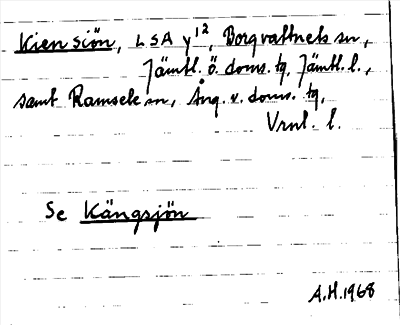 Kiensiön, LSA y¹², Borgvattnets sn,
Jämtl. ö. doms. tg, Jämtl. l.,
samt Ramsele sn, Ång. v. doms. tg,
Vrnl. l.
Se Kängsjön
A.H. 1968